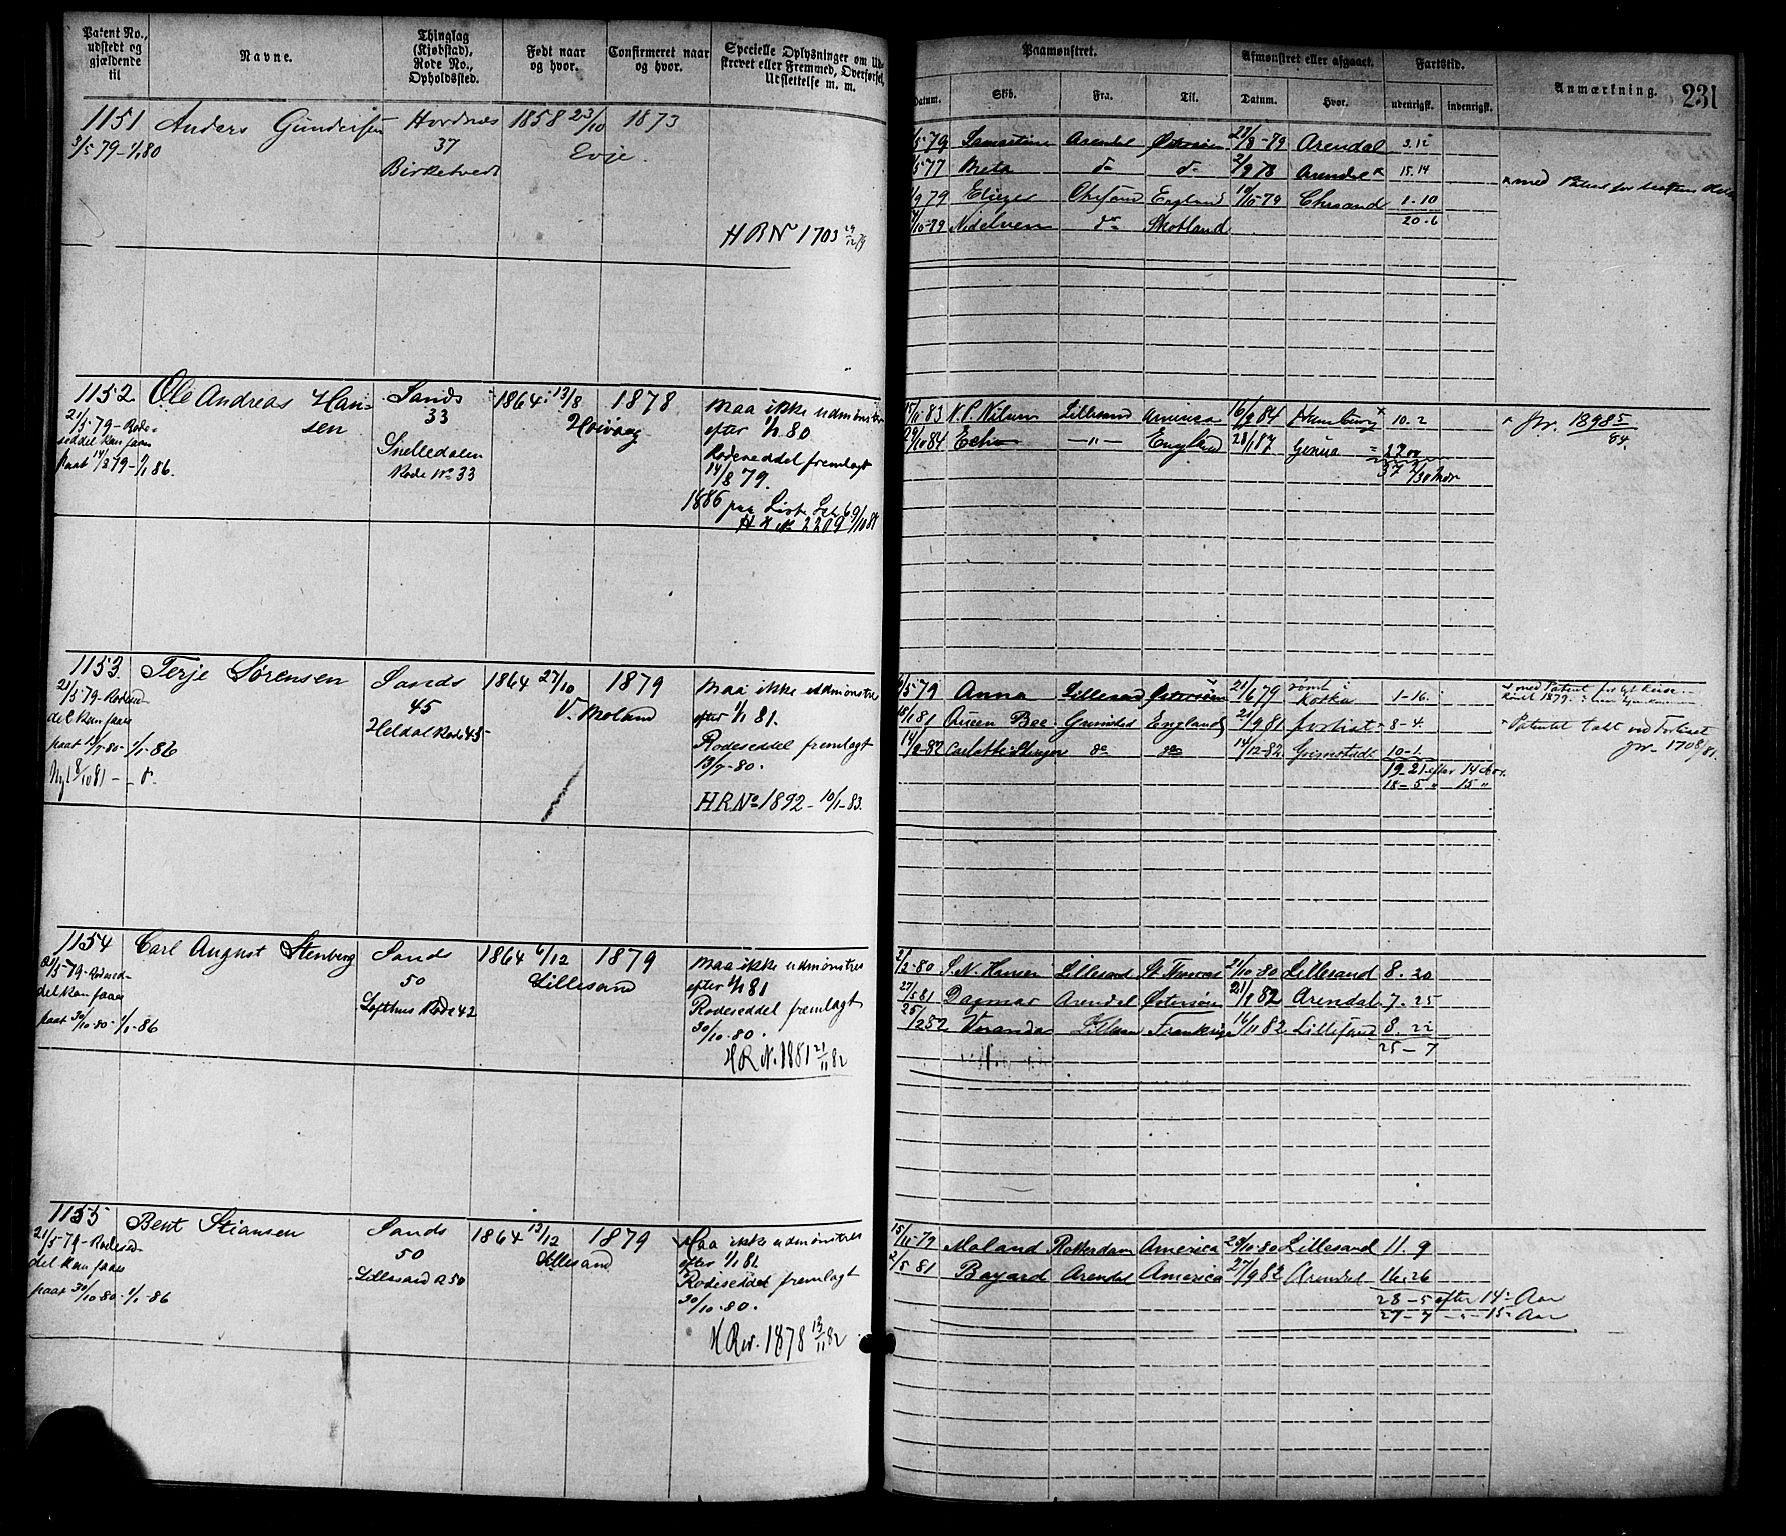 Patent No., udstedt og gjældende til
Navne.
Thinglag (Kjøbstad), Rode No., Opholdssted.
Født naar og hvor.
Confirmeret naar og hvor.
Specielle Oplysninger om Ud-
skrevet eller Fremmed, Overførsel,
Udslettelse m. m.
Paamønstret.
Datum. Skib. Fra. Til.
Afmønstret eller afgaaet.
Datum. Hvor.
Fartstid.
udenrigsk. indenrigsk.
Anmærkning.
231
1151 Anders Gundersen
3/5 79-1/1 80
37
Birketvedt
1858 23/10
Evje.
1873
HRN 1703 29/12 79
Arendal Østersøen 27/8-79 Arendal 3.12
5 77 d- d- 2/9 78 Arendal x 15.14
9 79 England Chrsand 1-10
20-6
10-79 Nidelven d- Skotland
x med Patent for
1152 Ole Andreas Han-
sen
21/5-79-Rode-
seddel kan faaes
paat 14/8 79-1/1 86.
Sands
33
Snelledalen
Rode No 33
1864 13/8
Høivaag
1878
maa ikke udmønstres
efter 1/1 80
Rodeseddel fremlagt
14/8 79.
1886 paa
2209
83 N.P. Nilsen Lillesand America 16/9 84 Hamburg x 10.2
29/10 84 Echo -"- England 28/1 87 Genua
x Jvr. 1898 5/84
1153. Terje Sørensen
21/5-79-Rodesed-
del kan faaes
paat 13/7-80-1/1-86
Sands
45
Heldal Rode 45
1864 27/10
V. Moland
1879
maa ikke udmønstres
efter 1/1 81.
Rodeseddel fremlagt
13/7-80.
HRNo 1892-10/1-83.
5 79 Anna Lillesand Østersøen 21/6 79 rømt i
Kotka 1-16.
81 Queen Bee Grimstad England 2/9 81 forlist 8-4.
14/2-82 do do 14/12-82 Grimstad 10-1.
19-21 efter 14 Aar.
18-5 " 15 "
Patentet tabt ved Forliset
Jvr- 1708/81.
1154 Carl August Stenberg
21/5-79-Rodesed-
del kan faaes
paat 30/10-80-1/1-86
Sands
50
Lofthus Rode 42
1864 6/12
Lillesand
1879
maa ikke udmønstres
efter 1/1 81
Rodeseddel fremlagt
30/10-80.
HRN. 1881 21/11 82
2/2-80 S.N. Hansen Lillesand St. Thomas 21/10-80 Lillesand 8.20
27/5 81 Dagmar Arendal Østersøen 21/1 82 Arendal 7.25
25/2 82 Veranda 16/11 82 Lillesand 8.22
25-7
1155 Bent Stiansen
21/5-79-Rodesed-
del kan faaes
paat 30/10-80-1/1-86
Sands
50
Lillesand R 50
1864 13/12
Lillesand
1879
Maa ikke udmønstres
efter 1/1 81
Rodeseddel fremlagt
30/10-80.
HRN. 1878 13/11 82
15/11-79 Moland Rotterdam America 28/10-80 Lillesand 11.9
2/5 81 Bayard Arendal America 27/9 82 Arendal 16.26
28-5 efter 14 Aar
27-7 -"- 15 Aar